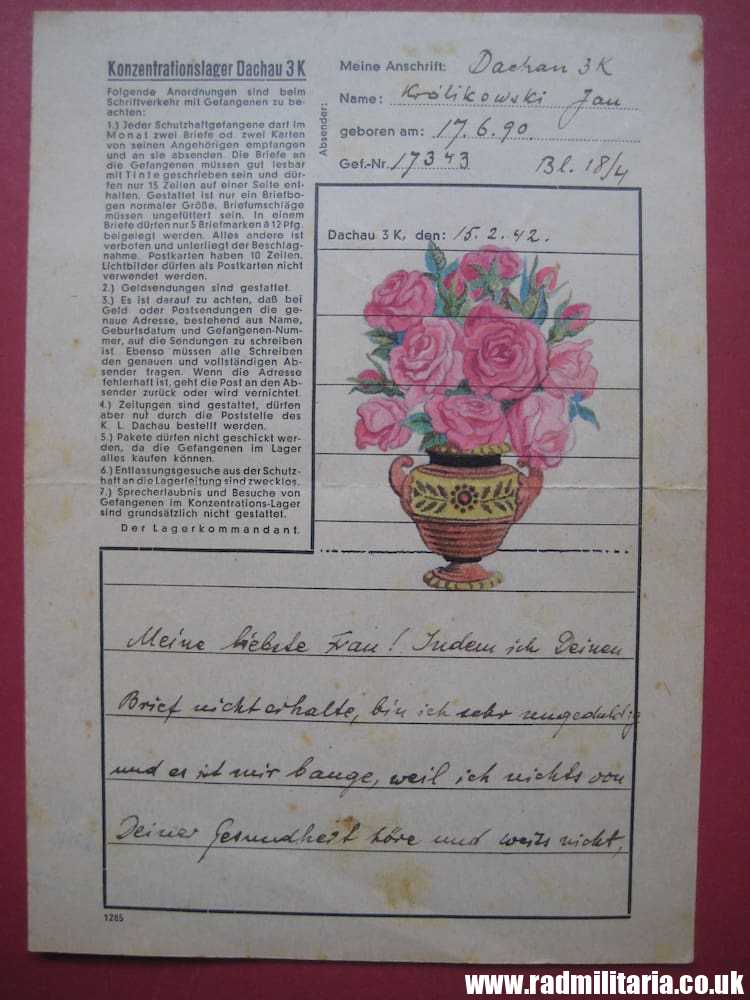 Konzentrationslager Dachau 3 K
Folgende Anordnungen sind beim
Schriftverkehr mit Gefangenen zu be-
achten:
1.) Jeder Schutzhaftgefangene darf im
Monat zwei Briefe od. zwei Karten
von seinen Angehörigen empfangen
und an sie absenden. Die Briefe an
die Gefangenen müssen gut lesbar
mit Tinte geschrieben sein und dür-
fen nur 15 Zeilen auf einer Seite ent-
halten. Gestattet ist nur ein Briefbo-
gen normaler Größe. Briefumschläge
müssen ungefüttert sein. In einem
Briefe dürfen nur 5 Briefmarken à 12 Pfg.
beigelegt werden. Alles andere ist
verboten und unterliegt der Beschlag-
nahme. Postkarten haben 10 Zeilen.
Lichtbilder dürfen als Postkarten nicht
verwendet werden.
2.) Geldsendungen sind gestattet.
3.) Es ist darauf zu achten, daß bei
Geld oder Postsendungen die ge-
naue Adresse, bestehend aus Name,
Geburtsdatum und Gefangenen-Num-
mer, auf die Sendungen zu schreiben
ist. Ebenso müssen alle Schreiben
den genauen und vollständigen Ab-
sender tragen. Wenn die Adresse
fehlerhaft ist, geht die Post an den Ab-
sender zurück oder wird vernichtet.
4.) Zeitungen sind gestattet, dürfen
aber nur durch die Poststelle des
K. L. Dachau bestellt werden.
5.) Pakete dürfen nicht geschickt wer-
den, da die Gefangenen im Lager
alles kaufen können.
6.) Entlassungsgesuche aus der Schutz-
haft an die Lagerleitung sind zwecklos.
7.) Sprecherlaubnis und Besuche von
Gefangenen im Konzentrations-Lager
sind grundsätzlich nicht gestattet.
Der Lagerkommandant.
Absender:
Meine Anschrift: Dachau 3K
Name: Królikowski Jan
geboren am: 17.6.90.
Gef.-Nr. 17343 Bl. 18/4
Dachau 3 K, den: 15.2.42.
Meine liebste Frau! Indem ich Deinen
Brief nicht erhalte, bin ich sehr ungeduldig
und es ist mir bange, weil ich nichts von
Deiner Gesundheit höre und weiß nicht,
1285
www.radmilitaria.co.uk